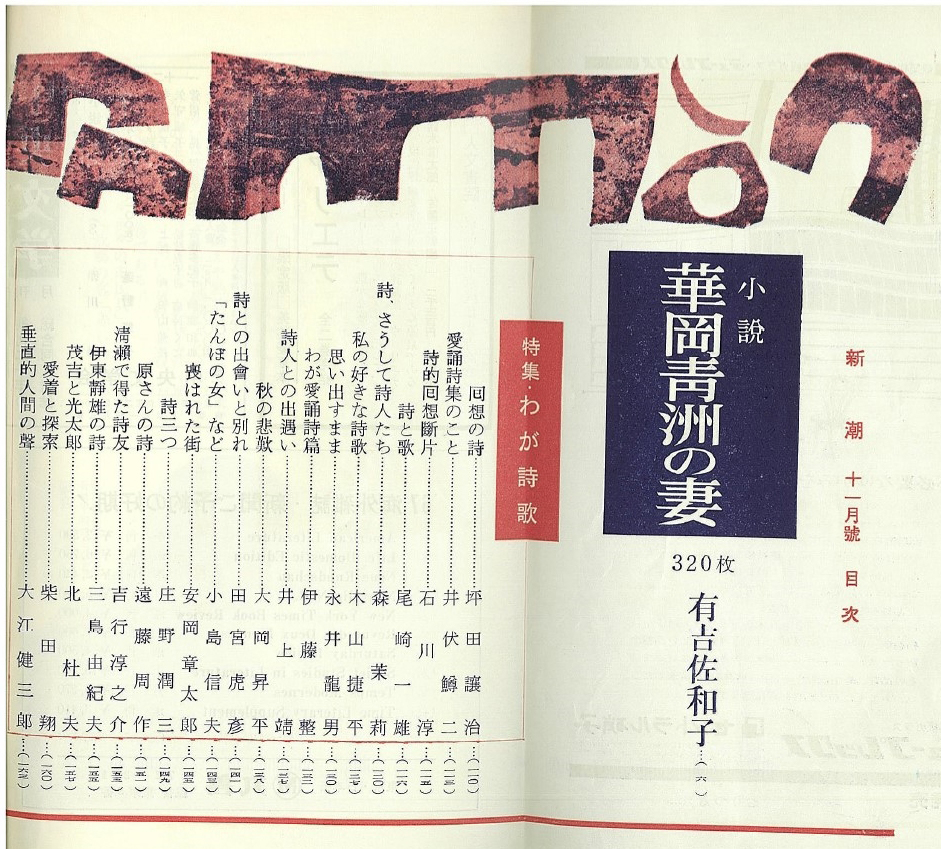 新潮 十一月號 目次
小説
華岡青洲の妻
320枚
有吉佐和子……(六)
特集・わが詩歌
回想の詩……坪田譲治……(一一〇)
愛誦詩集のこと……井伏鱒二……(一一三)
詩的回想斷片……石川淳……(一一五)
詩と歌……尾崎一雄……(一一六)
詩、さうして詩人たち……森茉莉……(一二〇)
私の好きな詩歌……木山捷平……(一二七)
思い出すまま……永井龍男……(一三〇)
わが愛誦詩篇……伊藤整……(一三二)
詩人との出遇い……井上靖……(一三七)
秋の悲歎……大岡昇平……(一三八)
詩との出會いと別れ……田宮虎彦……(一四一)
「たんぽの女」など……小島信夫……(一四三)
喪はれた街……安岡章太郎
詩三つ……庄野潤三……(一四九)
原さんの詩……遠藤周作……(一五一)
淸瀬で得た詩友……吉行淳之介……(一五三)
伊東靜雄の詩……三島由紀夫……(一五五)
茂吉と光太郎……北杜夫……(一五七)
愛着と探索……柴田翔……(一六〇)
垂直的人間の聲……大江健三郎……(一六三)